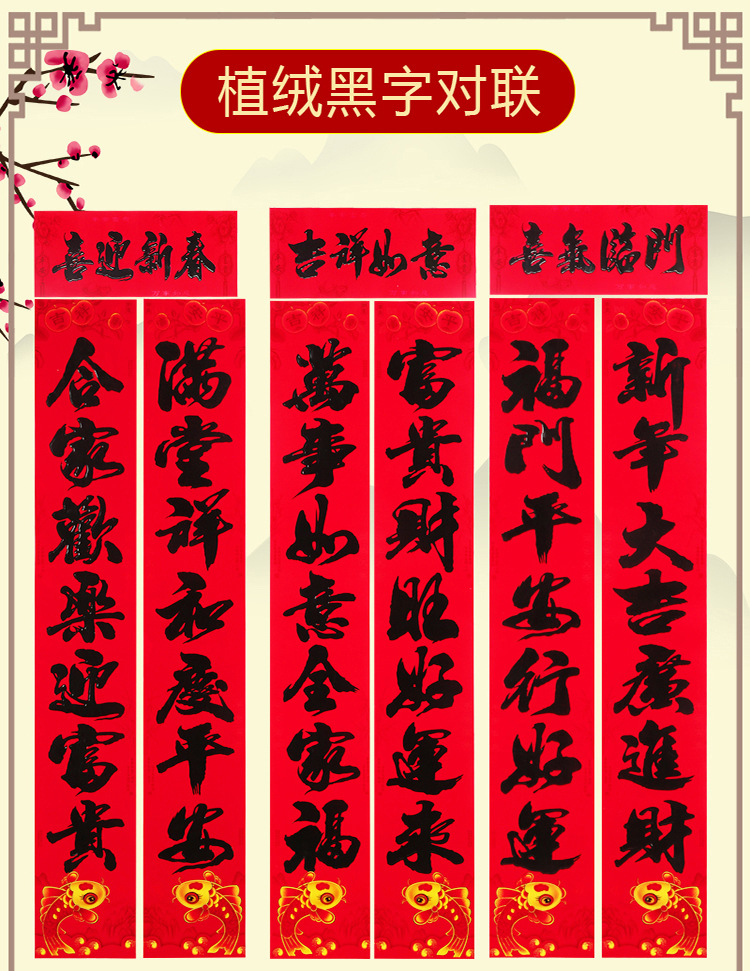 植绒黑字对联
喜迎新春
合家歡樂迎富貴
满堂祥和慶平安
吉祥如意
萬事如意全家福
富貴財旺好運来
喜氣臨門
福門平安行好運
新年大吉廣進財